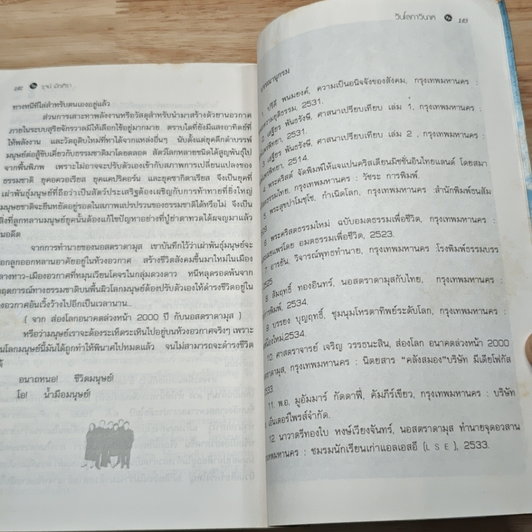 182 สุทธิ
ทางหนีทีไล่สำหรับตนเองอยู่แล้ว
ส่วนการเสาะหาพลังงานหรือวัสดุสำหรับนำมาสร้างตัวยานอวกาศ
ภายในระบบสุริยจักรวาลมีให้เลือกใช้อยู่มากมาย ตราบใดที่ยังมีแสงอาทิตย์ที่
ให้พลังงาน และวัตถุดิบใหม่ที่หาได้จากแหล่งอื่นๆ นับตั้งแต่ยุคดึกดำบรรพ์
มนุษย์ต่อสู้ขับเคี่ยวกับธรรมชาติมาโดยตลอด สัตว์โลกหลายชนิดได้สูญพันธุ์ไป
จากพื้นพิภพ เพราะไม่อาจจะปรับตัวเองเข้ากับสภาพการเปลี่ยนแปลงของ
ธรรมชาติ ยุคอควอเรียส ยุคแคปริคอร์น และยุคซากิตาเรียส จึงเป็นยุคที่
เผ่าพันธุ์มนุษย์ที่ถือว่าเป็นสัตว์ประเสริฐต้องเผชิญกับการท้าทายที่ยิ่งใหญ่
มนุษยชาติจะยืนหยัดอยู่รอดในสภาพแปรปรวนของธรรมชาติได้หรือไม่ จึงเป็น
สิ่งที่ลูกหลานมนุษย์ยุคนั้นต้องแก้ไขปัญหาอย่างที่ปู่ย่าตาทวดได้ผจญมาแล้ว
ในอดีต
จากการทำนายของนอสตราดามุส เขาบันทึกไว้ว่าเผ่าพันธุ์มนุษย์จะ
ออกลูกออกหลานอาศัยอยู่ในห้วงอวกาศ สร้างชีวิตสังคมขึ้นมาใหม่ในเมือง
กลางหาว-เมืองอวกาศที่หมุนเวียนโคจรในกลุ่มดวงดาว หนีหลุดรอดพ้นจาก
เหตุการณ์ทางธรรมชาติบนพื้นผิวโลกมนุษย์ต้องปรับตัวเองให้ดำรงชีวิตอยู่ใน
ห้วงอวกาศอันเวิ้งว้างไปอีกเป็นเวลานาน..
( จาก ส่องโลกอนาคตล่วงหน้า 2000 ปี กับนอสตราดามุส )
หรือว่ามนุษย์เราจะต้องระเห็ดระเหินไปอยู่บนห้วงอวกาศจริงๆ เพราะ
บนโลกมนุษย์นี้มันได้ถูกทำให้พินาศไปหมดแล้ว จนไม่สามารถจะดำรงชีวิต
ได้
อนาถหนอ! ชีวิตมนุษย์!
โอ! น้ำมือมนุษย์!
วันโลกาวินาศ 183
บรรณานุกรม
พนมยงค์, ความเป็นอนิจจังของสังคม, กรุงเทพมหานคร :
2531.
เสฐียร พันธรังษี, ศาสนาเปรียบเทียบ เล่ม 1, กรุงเทพมหานคร :
2531.
เสฐียร พันธรังษี, ศาสนาเปรียบเทียบ เล่ม 2 , กรุงเทพมหานคร :
2514.
4 พระคริสต์ จัดพิมพ์ให้แจแปนคริสเตียนถังชันอินไทยแลนด์ โดยสมา
กรุงเทพมหานคร : วัชระ การพิมพ์.
5 พระสุชปาโมชฺโช, กำเนิดโลก, กรุงเทพมหานคร สำนักพิมพ์ขนสัม
6 พระคริสตธรรมใหม่ ฉบับอมตธรรมเพื่อชีวิต, กรุงเทพมหานคร :
อมตธรรมเพื่อชีวิต, 2523.
7 อารยัน, วิจารณ์พุทธทำนาย, กรุงเทพมหานคร โรงพิมพ์ธรรมบรร
8 สัมฤทธิ์ ทองอินทร์, นอสตราดามุสกับไทย, กรุงเทพมหานคร :
2534.
9 บรรยง บุญฤทธิ์, ชุมนุมโหรตาทิพย์ระดับโลก, กรุงเทพมหานคร :
2534.
10 ศาสตราจารย์ เจริญ วรรธนะสิน, ส่องโลก อนาคตล่วงหน้า 2000
กรุงเทพมหานคร : นิตยสาร "คลังสมอง"บริษัท มีเดียโฟกัส
11. พ.อ. มูอัมมาร์ กัดดาฟี่, คัมภีร์เขียว, กรุงเทพมหานคร : บริษัท
เอ็นเตอร์ไพรส์จำกัด.
12 นาวาตรีทองใบ หงษ์เวียงจันทร์, นอสตราดามุส ทำนายจุดอวสาน
กรุงเทพมหานคร : ชมรมนักเรียนเก่าแอลเอสอี (L S E), 2533.